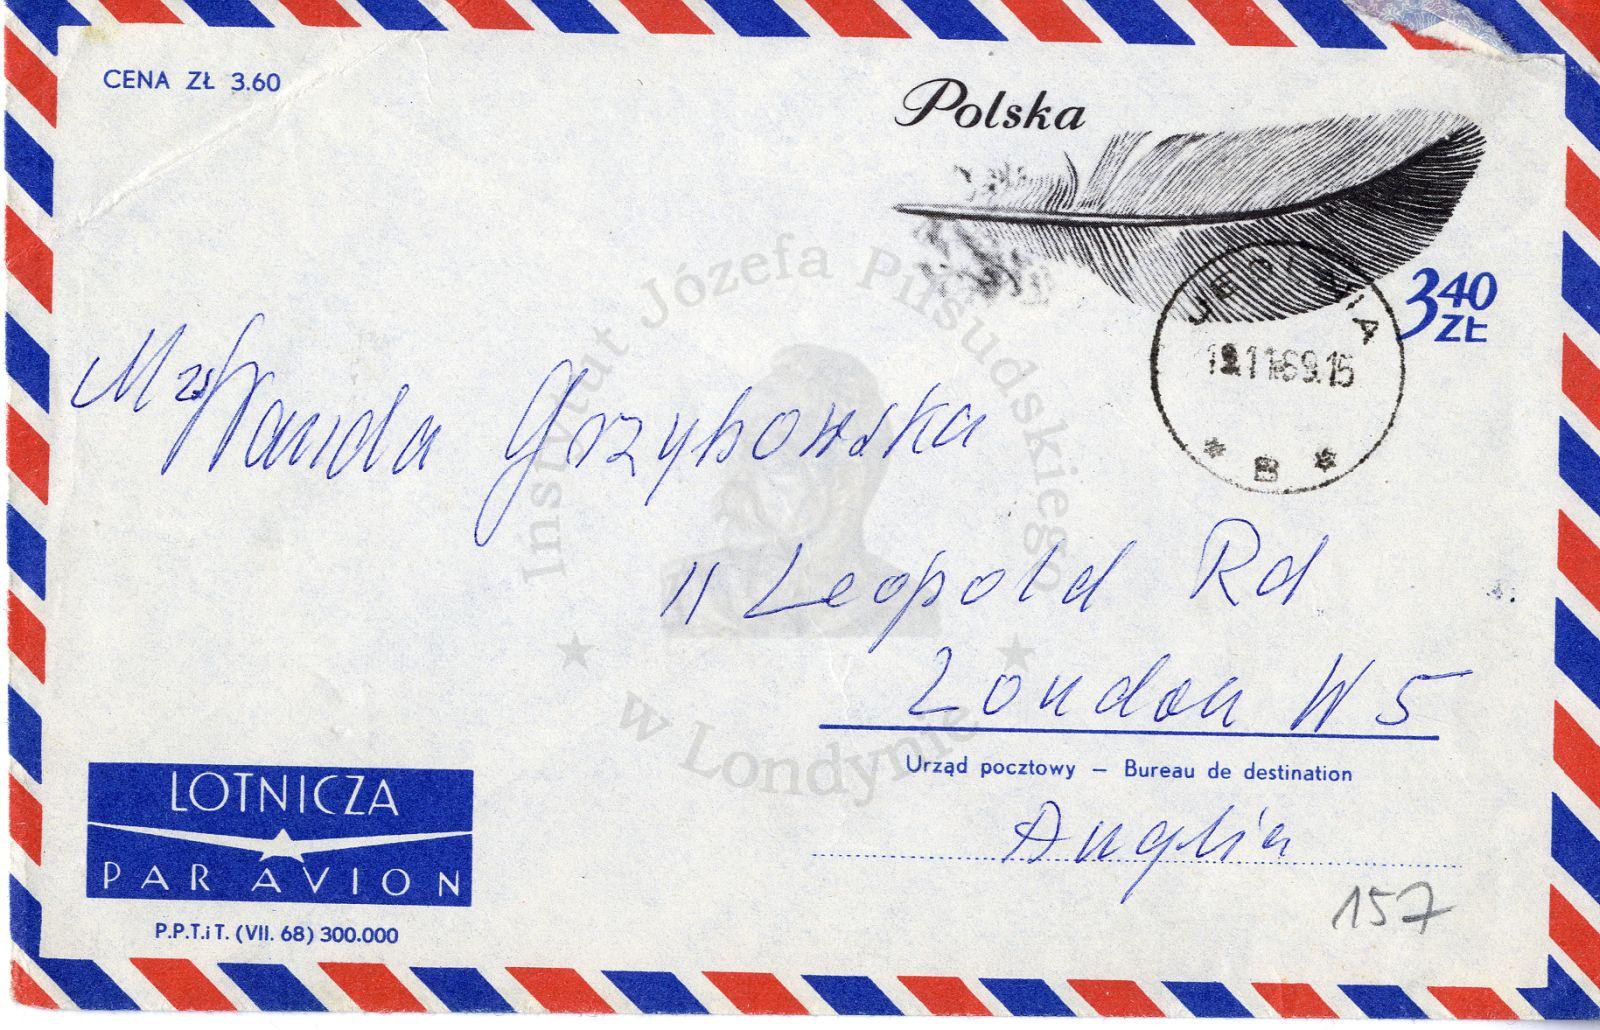 CENA ZŁ 3.60
Polska
3 40 ZŁ
19.11.69.15
* B *
Mrs Wanda Grzybowska
11 Leopold Rd
London W 5
Urząd pocztowy — Bureau de destination
Anglia
157
LOTNICZA
PAR AVION
P.P.T.i T. (VII. 68) 300.000
Instytut Józefa Piłsudskiego
w Londynie